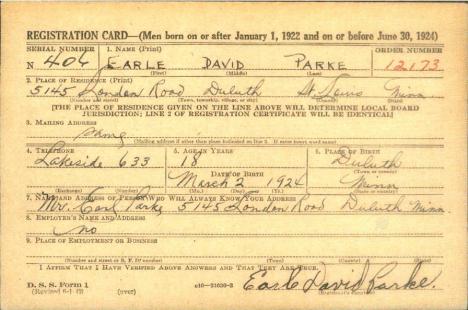 REGISTRATION CARD—(Men born on or after January 1, 1922 and on or before June 30, 1924)
SERIAL NUMBER 1. NAME (Print) ORDER NUMBER
N 406 EARLE DAVID PARKE 12173
(First) (Middle) (Last)
2. PLACE OF RESIDENCE (Print)
5145 London Road Duluth St. Louis Minn
(Number and street) (Town, township, village, or city) (County) (State)
[THE PLACE OF RESIDENCE GIVEN ON THE LINE ABOVE WILL DETERMINE LOCAL BOARD
JURISDICTION; LINE 2 OF REGISTRATION CERTIFICATE WILL BE IDENTICAL]
3. MAILING ADDRESS
Same
[Mailing address if other than place indicated on line 2. If same insert word same]
4. TELEPHONE 5. AGE IN YEARS 6. PLACE OF BIRTH
Lakeside 633 18 Duluth
DATE OF BIRTH (Town or county)
March 2 1924 Minn
(Exchange) (Number) (Mo.) (Day) (Yr.) (State or country)
7. NAME AND ADDRESS OF PERSON WHO WILL ALWAYS KNOW YOUR ADDRESS
Mr. Earl Parke 5145 London Road Duluth Minn.
8. EMPLOYER'S NAME AND ADDRESS
no
9. PLACE OF EMPLOYMENT OR BUSINESS
(Number and street or R. F. D. number) (Town) (County) (State)
I AFFIRM THAT I HAVE VERIFIED ABOVE ANSWERS AND THAT THEY ARE TRUE.
D. S. S. Form 1
(Revised 6-1-42) (over) 16-21630-2 Earle David Parke.